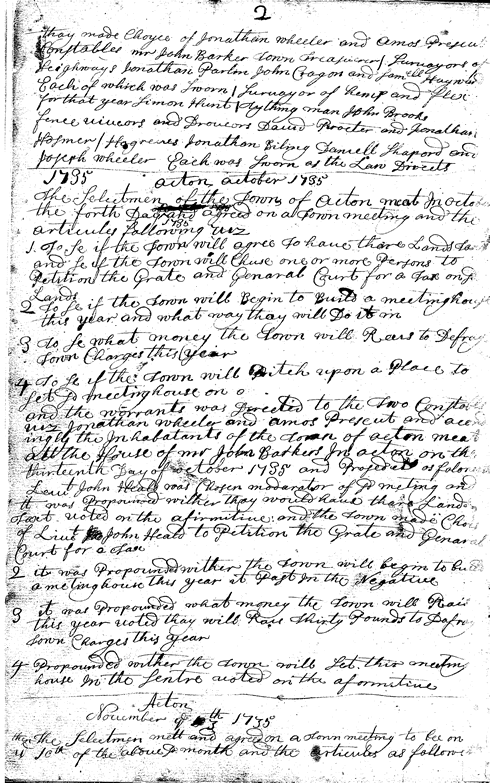 2
thay made Choyce of Jonathan wheeler and Amos Prescut
Constables mr John Barker Town Treasurer / Survayors of
Heighways Jonathan Parlon John Cragon and Samll Hayward
Each of which was Sworn / Survayor of Hemp and flex
for that year Simon Hunt / Tything man John Brooks
fence viucors and Drovcors David Procter and Jonathan
Hosmer / Hogreves Jonathan Biling Daniell Shapord and
Joseph wheeler Each was Sworn as the Law Directs
1735 acton october 1735
The Selectmen of the Town of Acton meat In october
the forth Day 1735 and agreed on a Town meeting and the
articules following viz
1. To Se if the Town will agree To have there Lands Tax
and Se if the Town will Chuse one or more Persons to
Petition the Grate and Genaral Court for a Tax on sd
Lands
2 To Se if the Town will Begin to Build a meetinghouse
this year and what way thay will Do it in
3 To Se what money the Town will Raes to Defray
Town Charges this year
4 To Se if the Town will Pitch upon a Place to
Set sd meetinghouse on
and the worrants was Directed to the Two Constables
viz Jonathan wheeler and amos Prescut and acc
ingly the Inhabatants of the Town of acton meat
att the House of mr John Barkers In acton on the
thirteenth Day of october 1735 and Proseded as folors
Leut John Heald was Chosen modarator of sd meting and
it was Propounded wither thay would have thare Lands
Taxt voted on the afirmitive: and the Town made Choic
of Liut John Heald to Petition the Grate and Genaral
Court for a Tax
2 it was Propounded wither the Town will begin to build
a metinghouse this year it Past In the Negative
3 it was Propounded what money the Town will Rais
this year voted thay will Rais thirty Pounds to Dafray
Town Charges this year
4 Propounded wither the Town will Set this meeting
house In the Sentre voted on the aformitive
Acton
November 1735
The Selectmen mett and agree on a Town meeting to be on
10th of the above sd month and the articules as followes